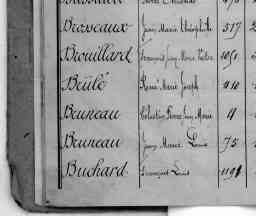 Brosseaux Jean Marie Théophile 517
Brouillard François Jean Marie Victor 1051
Brûlé René Marie Joseph 810
Bruneau Célestin Pierre Jean Marie 4
Bruneau Jean Marie Louis 75
Buchard François Louis 1191